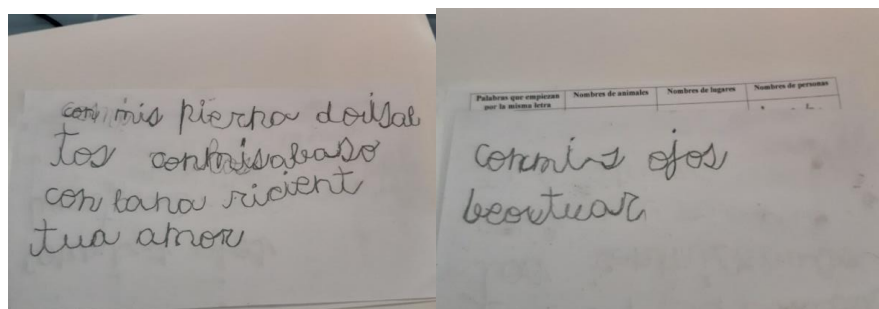 con mis pierna doisal
tos conmisabaso
con lana ricient
tua amor
Palabras que empiezan por la misma letra
Nombres de animales
Nombres de lugares
Nombres de personas
conmis ojos
beoutuar